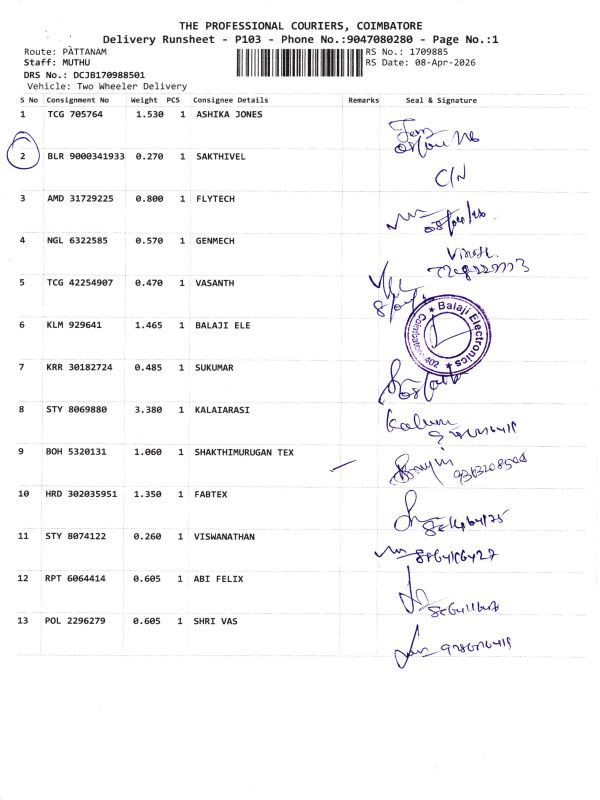 THE PROFESSIONAL COURIERS, COIMBATORE
Delivery Runsheet - P103 - Phone No.:9047080280 - Page No.:1
Route: PATTANAM RS No.: 1709885
Staff: MUTHU RS Date: 08-Apr-2026
DRS No.: DCJB170988501
Vehicle: Two Wheeler Delivery
S No Consignment No Weight PCS Consignee Details Remarks Seal & Signature
1 TCG 705764 1.530 1 ASHIKA JONES
2 BLR 9000341933 0.270 1 SAKTHIVEL
C/N
3 AMD 31729225 0.800 1 FLYTECH
4 NGL 6322585 0.570 1 GENMECH
5 TCG 42254907 0.470 1 VASANTH
6 KLM 929641 1.465 1 BALAJI ELE
Balaji Electronics
Coimbatore 402
7 KRR 30182724 0.485 1 SUKUMAR
8 STY 8069880 3.380 1 KALAIARASI
9 BOH 5320131 1.060 1 SHAKTHIMURUGAN TEX
10 HRD 302035951 1.350 1 FABTEX
11 STY 8074122 0.260 1 VISWANATHAN
12 RPT 6064414 0.605 1 ABI FELIX
13 POL 2296279 0.605 1 SHRI VAS